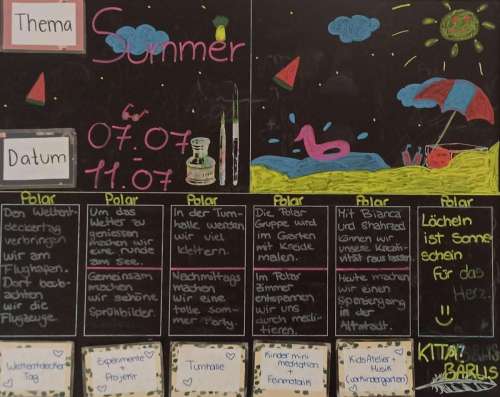 Thema
Summer
Datum
07.07
-
11.07
Polar
Polar
Polar
Polar
Polar
Polar
Den Weltent-
deckertag
verbringen
wir am
Flughafen.
Dort beob-
achten
wir die
Flugzeuge.
Um das
Wetter zu
geniessen
machen wir
eine runde
am See.
Gemeinsam
machen
wir schöne
Sprühbilder.
In der Turn-
halle werden
wir viel
klettern.
Nachmittags
machen
wir eine
tolle som-
mer Party.
Die Polar
Gruppe wird
im Garten
mit Kreide
malen.
Im Polar
zimmer
entspannen
wir uns
durch medi-
tieren.
Mit Bianca
und Shahrzad
können wir
unsere Kreati-
vität raus lassen.
Heute machen
wir einen
Spaziergang
in der
Altstadt.
Lächeln
ist Sonne
schein
für das
Herz.
Weltentdecker
Tag
Experimente
+
Projekt
Turnhalle
Kinder mini
medikation
+
Feinmotorik
KidsAtelier +
Musik
(vorkindergarten)
KITA
BÄRLIS